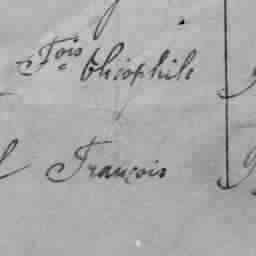 Fois théophile
François